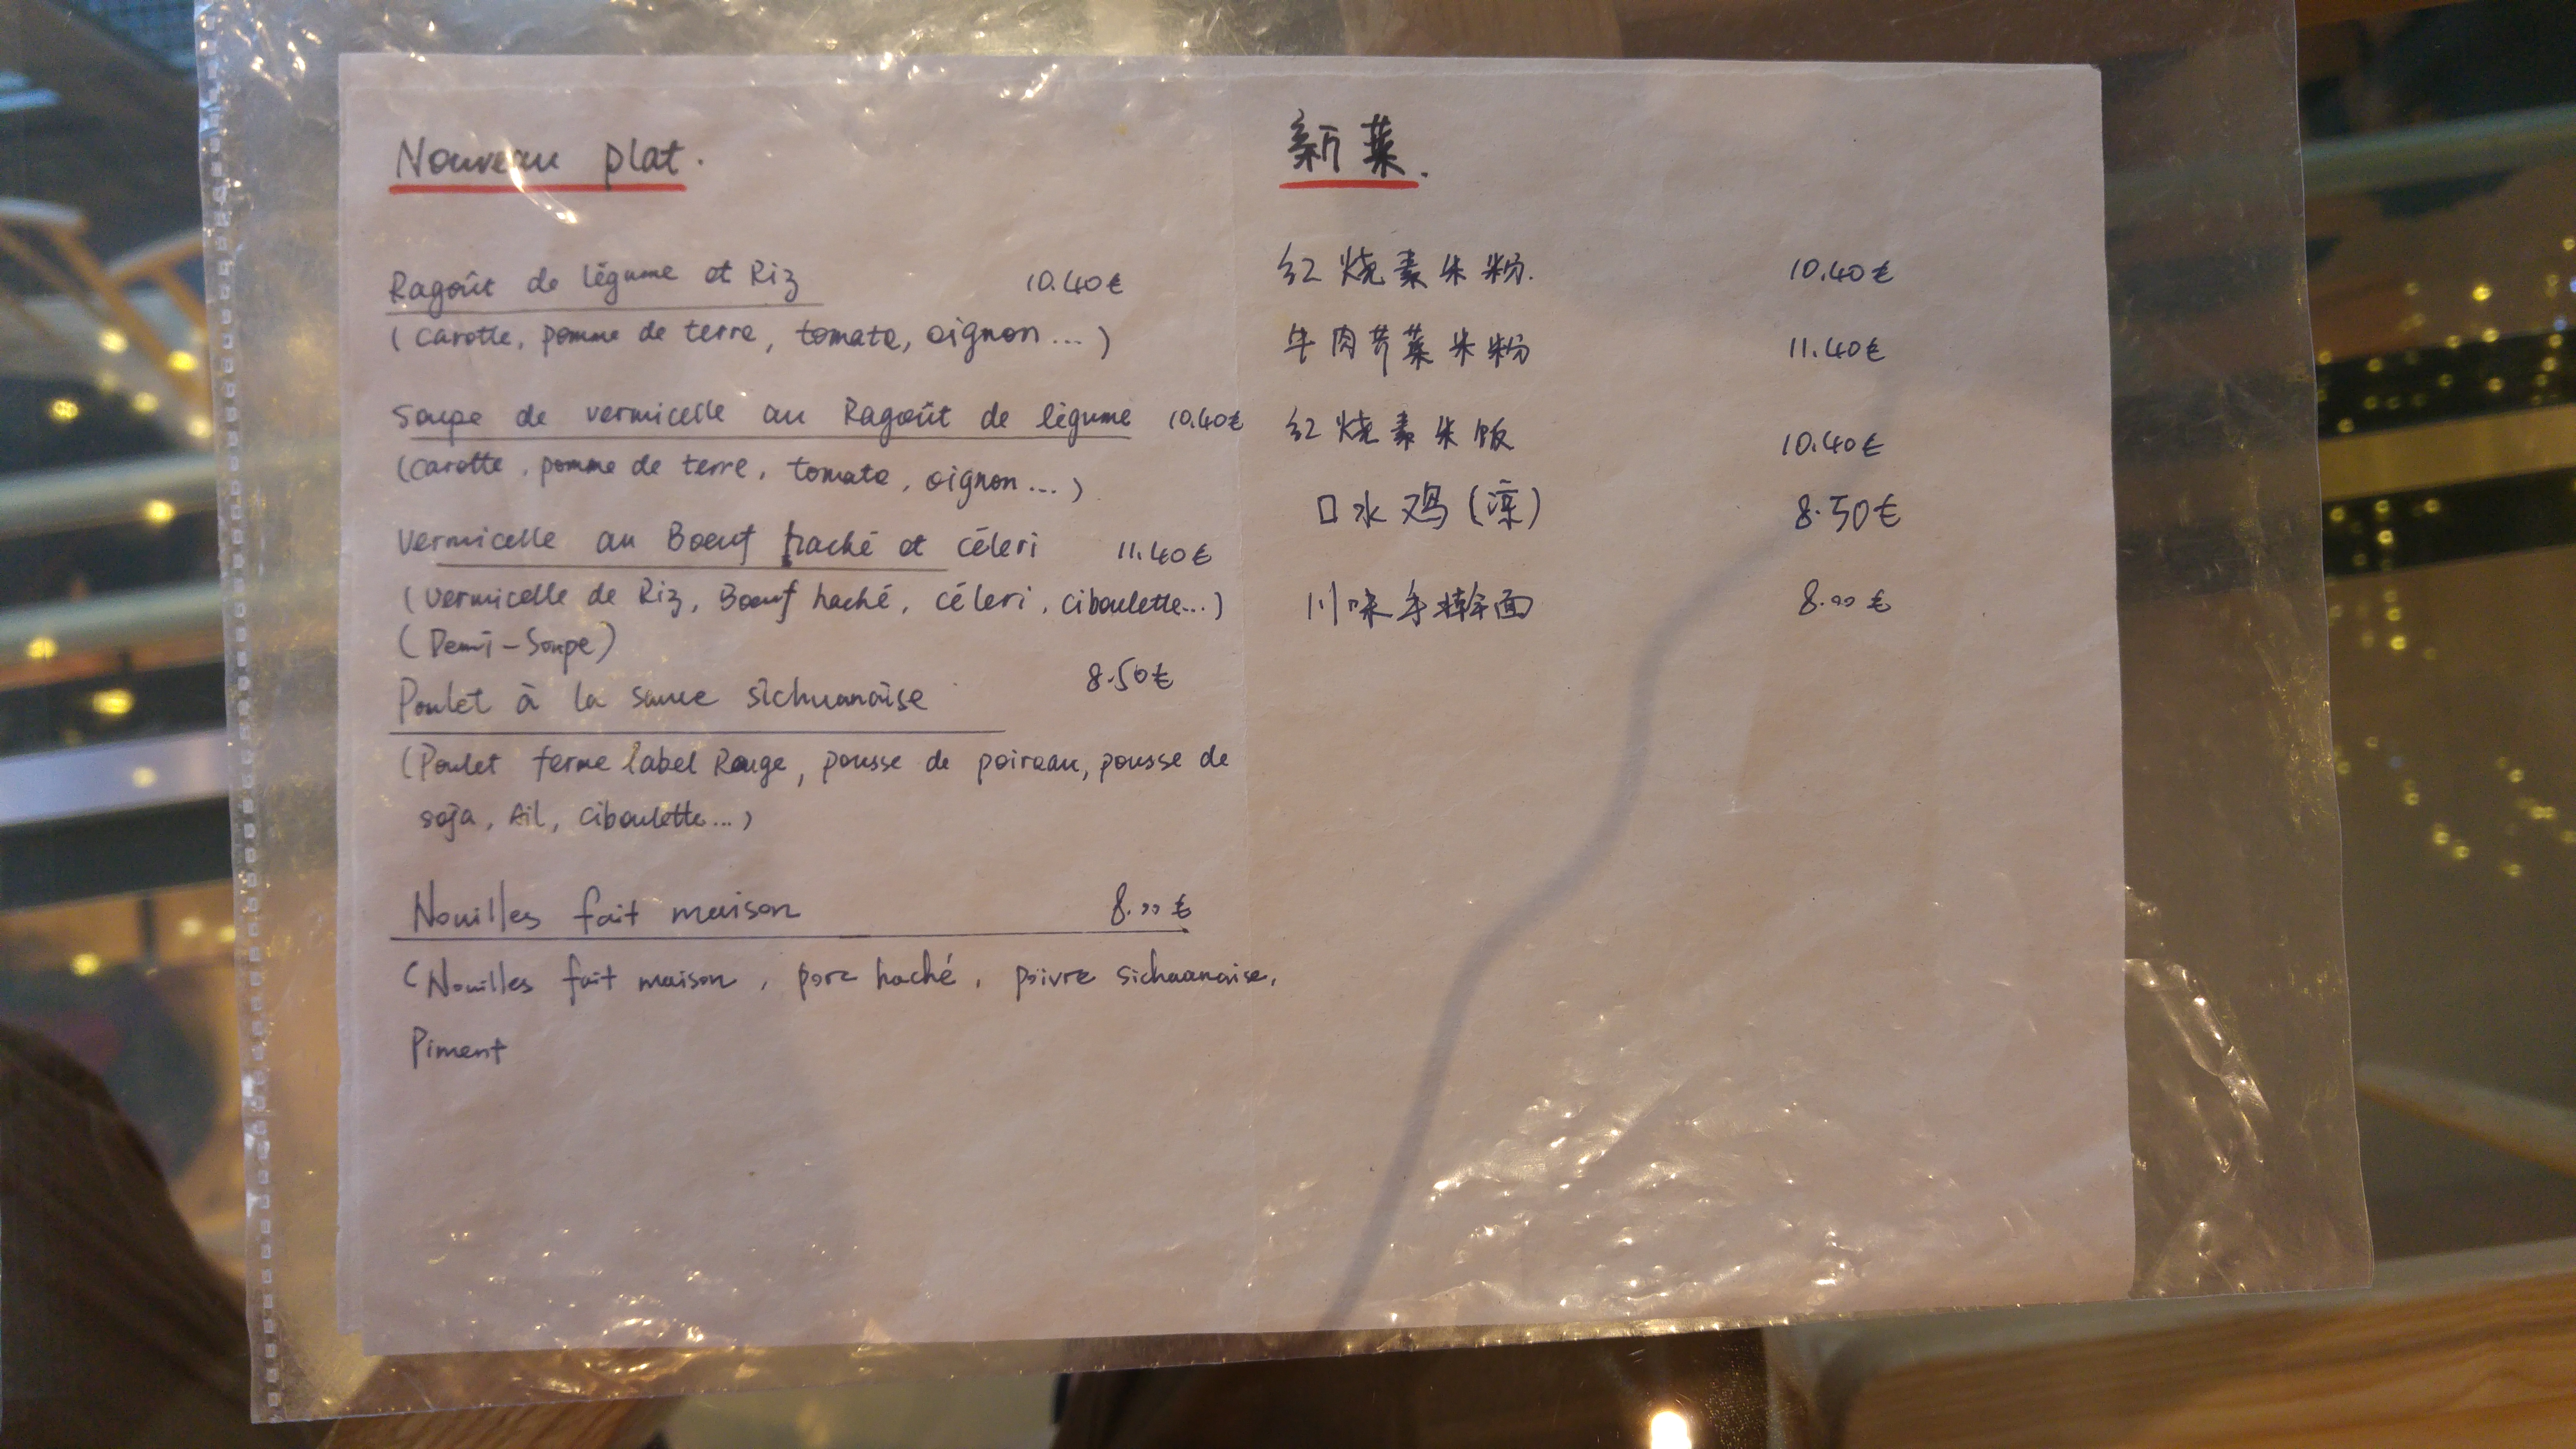 Nouveau plat.
Ragoût de légume et Riz 10.40€
(carotte, pomme de terre, tomate, oignon...)
Soupe de vermicelle au Ragoût de légume 10.40€
(carotte, pomme de terre, tomate, oignon...)
Vermicelle au Boeuf haché et céleri 11.40€
(vermicelle de Riz, Boeuf haché, céleri, ciboulette...)
(Demi-Soupe)
Poulet à la sauce sichuanaise 8.50€
(Poulet ferme label Rouge, pousse de poireau, pousse de
soja, Ail, ciboulette...)
Nouilles fait maison 8.00€
(Nouilles fait maison, porc haché, poivre sichuanaise,
Piment
新菜.
红烧素米粉. 10.40€
牛肉芹菜米粉 11.40€
红烧素米饭 10.40€
口水鸡(凉) 8.50€
川味手擀面 8.00€